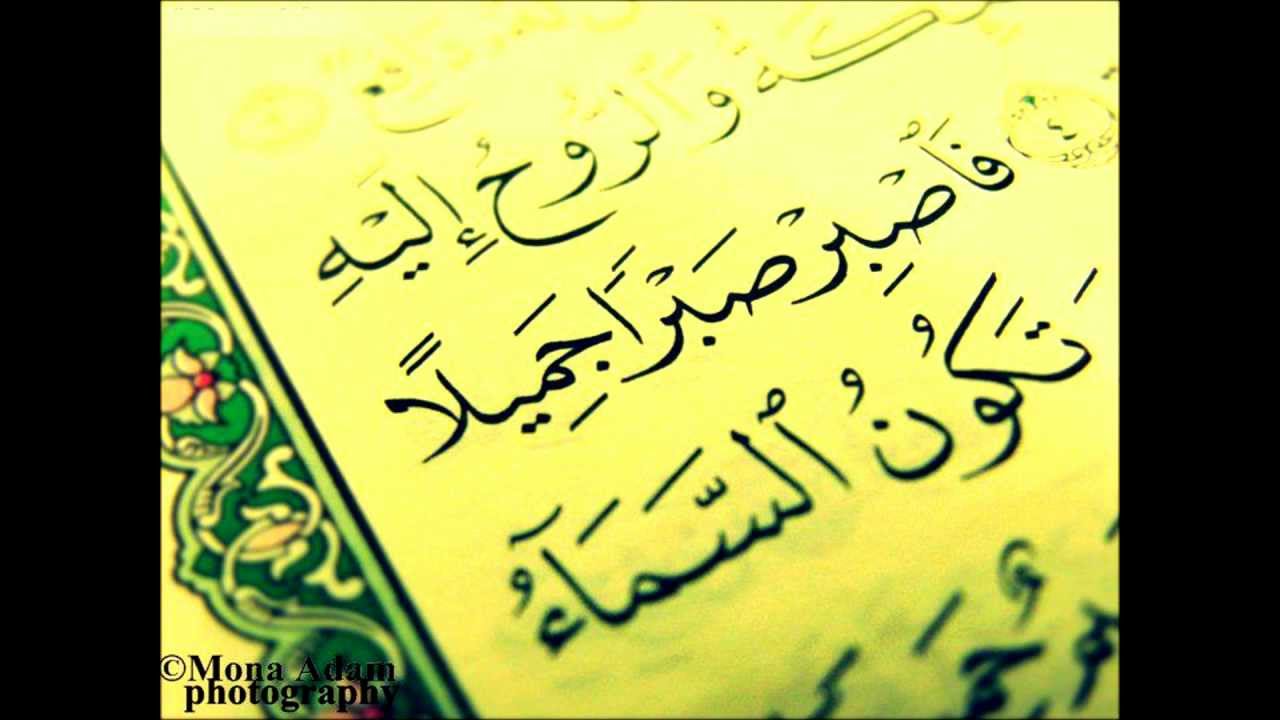 كَةُ وَٱلرُّوحُ إِلَيْهِ
٤ فَٱصْبِرْ صَبْرًا جَمِيلًا
تَكُونُ ٱلسَّمَآءُ
©Mona Adam
photography